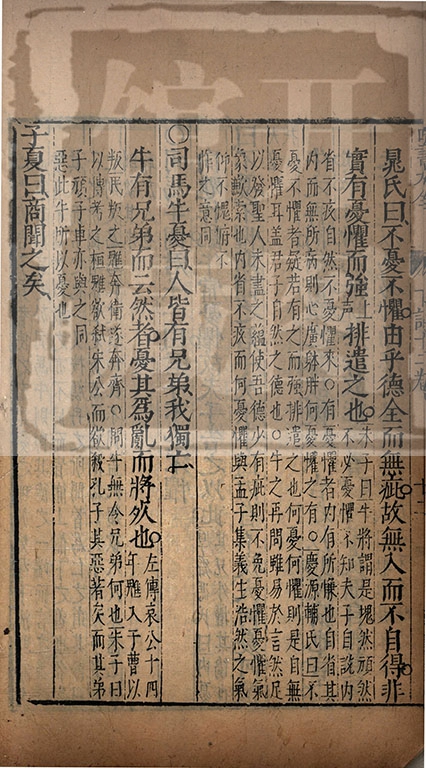 晁氏曰不憂不懼由乎德全而無疵故無入而不自得非
實有憂懼而強上聲排遣之也
朱子曰牛將謂是塊然頑然
不必憂懼不知夫子自說內
省不疚自然不憂懼來○有憂懼者內有所慊也自省其
內而無所病則心廣體胖何憂懼之有○慶源輔氏曰不
憂不懼者疑若有之而強排遣之也何憂何懼則是自無
憂懼耳蓋君子自然之德也○牛之再問雖易於言然足
以發聖人未盡之蘊使吾德少有疵則不免憂懼而氣
象歉索也內省不疚而何憂懼與孟子集義生浩然之氣
仰不愧俯不
怍之意同
○司馬牛憂曰人皆有兄弟我獨亡
牛有兄弟而云然者憂其為亂而將死也
左傳哀公十四
年魋入于曹以
叛民叛之魋奔衛遂奔齊○問牛無令兄弟何也朱子曰
以傳考之桓魋欲弒宋公而欲殺孔子其惡著矣而其弟
子頎子車亦與之同
惡此牛所以憂也
子夏曰商聞之矣